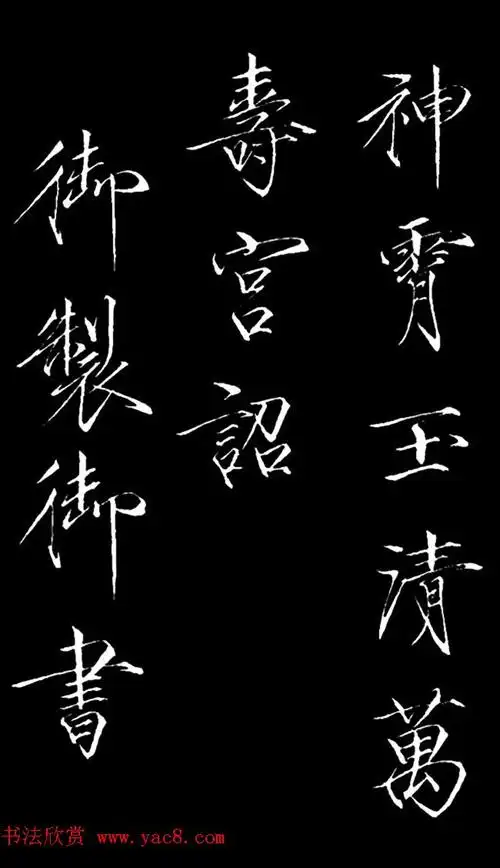 神霄玉清萬
壽宮詔
御製御書
书法欣赏 www.yac8.com